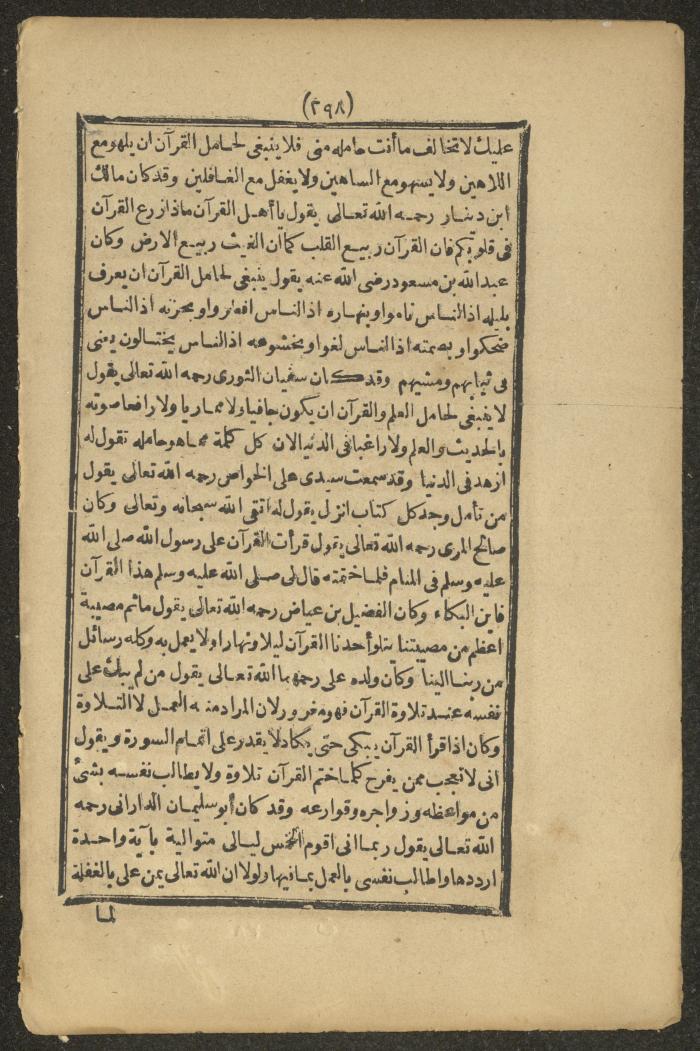 (٢٩٨)
عليك لا تخالف ما أنت حامله منى فلا ينبغى لحامل القرآن ان يلهو مع
اللاهين ولا يسهو مع الساهين ولا يغفل مع الغافلين وقد كان مالك
ابن دينار رحمه الله تعالى يقول يا أهل القرآن ماذا زرع القرآن
فى قلوبكم فان القرآن ربيع القلب كما ان الغيث ربيع الارض وكان
عبد الله بن مسعود رضى الله عنه يقول ينبغى لحامل القرآن ان يعرف
بليله اذ الناس ناموا وبنهاره اذ الناس افطروا وبحزنه اذ الناس
ضحكوا وبصمته اذ الناس لغوا وبخشوعه اذ الناس يختالون يعنى
فى ثيابهم ومشيهم وقد كان سفيان الثورى رحمه الله تعالى يقول
لا ينبغى لحامل العلم والقرآن ان يكون جافيا ولا مماريا ولا رافعا صوته
بالحديث والعلم ولا راغبا فى الدنيا لان كل كلمة مما هو حامله تقول له
ازهد فى الدنيا وقد سمعت سيدى على الخواص رحمه الله تعالى يقول
من تأمل وجد كل كتاب انزل يقول له اتقى الله سبحانه وتعالى وكان
صالح المرى رحمه الله تعالى يقول قرأت القرآن على رسول الله صلى الله
عليه وسلم فى المنام فلما ختمته قال لى صلى الله عليه وسلم هذا القرآن
فاين البكاء وكان الفضيل بن عياض رحمه الله تعالى يقول ما ثم مصيبة
اعظم من مصيبتنا يتلو أحدنا القرآن ليلا ونهارا ولا يعمل به وكله رسائل
من ربنا الينا وكان ولده على رحمهما الله تعالى يقول من لم يبك على
نفسه عند تلاوة القرآن فهو مغرور لان المراد منه العمل لا التلاوة
وكان اذا قرأ القرآن يبكى حتى يكاد لا يقدر على اتمام السورة ويقول
انى لا تعجب ممن يفرح كلما ختم القرآن تلاوة ولا يطالب نفسه بشئ
من مواعظه وزواجره وقوارعه وقد كان أبو سليمان الدارانى رحمه
الله تعالى يقول ربما انى اقوم الخمس ليالى متوالية بآية واحدة
ارددها واطالب نفسى بالعمل بما فيها ولولا ان الله تعالى يمن على بالغفلة
لما